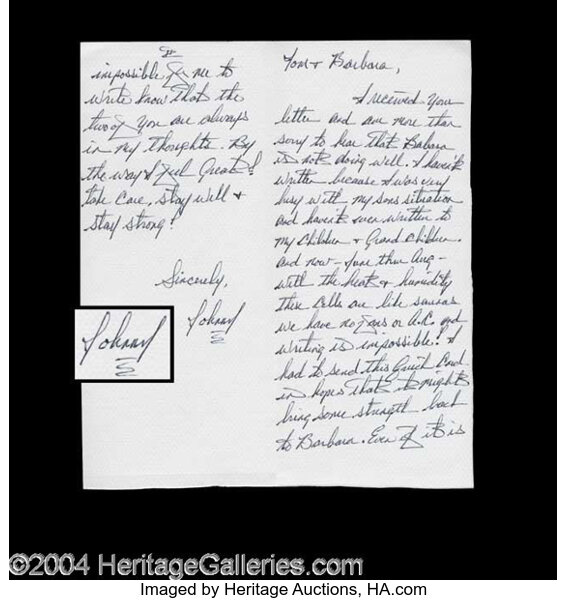 Tom + Barbara,
I received your
letter and am more than
sorry to hear that Babara
is not doing well. I haven't
written because I was very
busy with my sons situation
and haven't even written to
my Children + Grand Children.
and now - June thru Aug -
with the heat + humidity
these Cells are like saunas
we have no fans or A.C. and
writing is impossible! I
had to send this Quick Card
in hopes that it might
bring some strength back
to Barbara. Even if it is
II
impossible for me to
write know that the
two of you are always
in my thoughts. By
the way I feel Great!
take Care, stay well +
stay strong!
Sincerely,
Johnny
Johnny
©2004 HeritageGalleries.com
Imaged by Heritage Auctions, HA.com